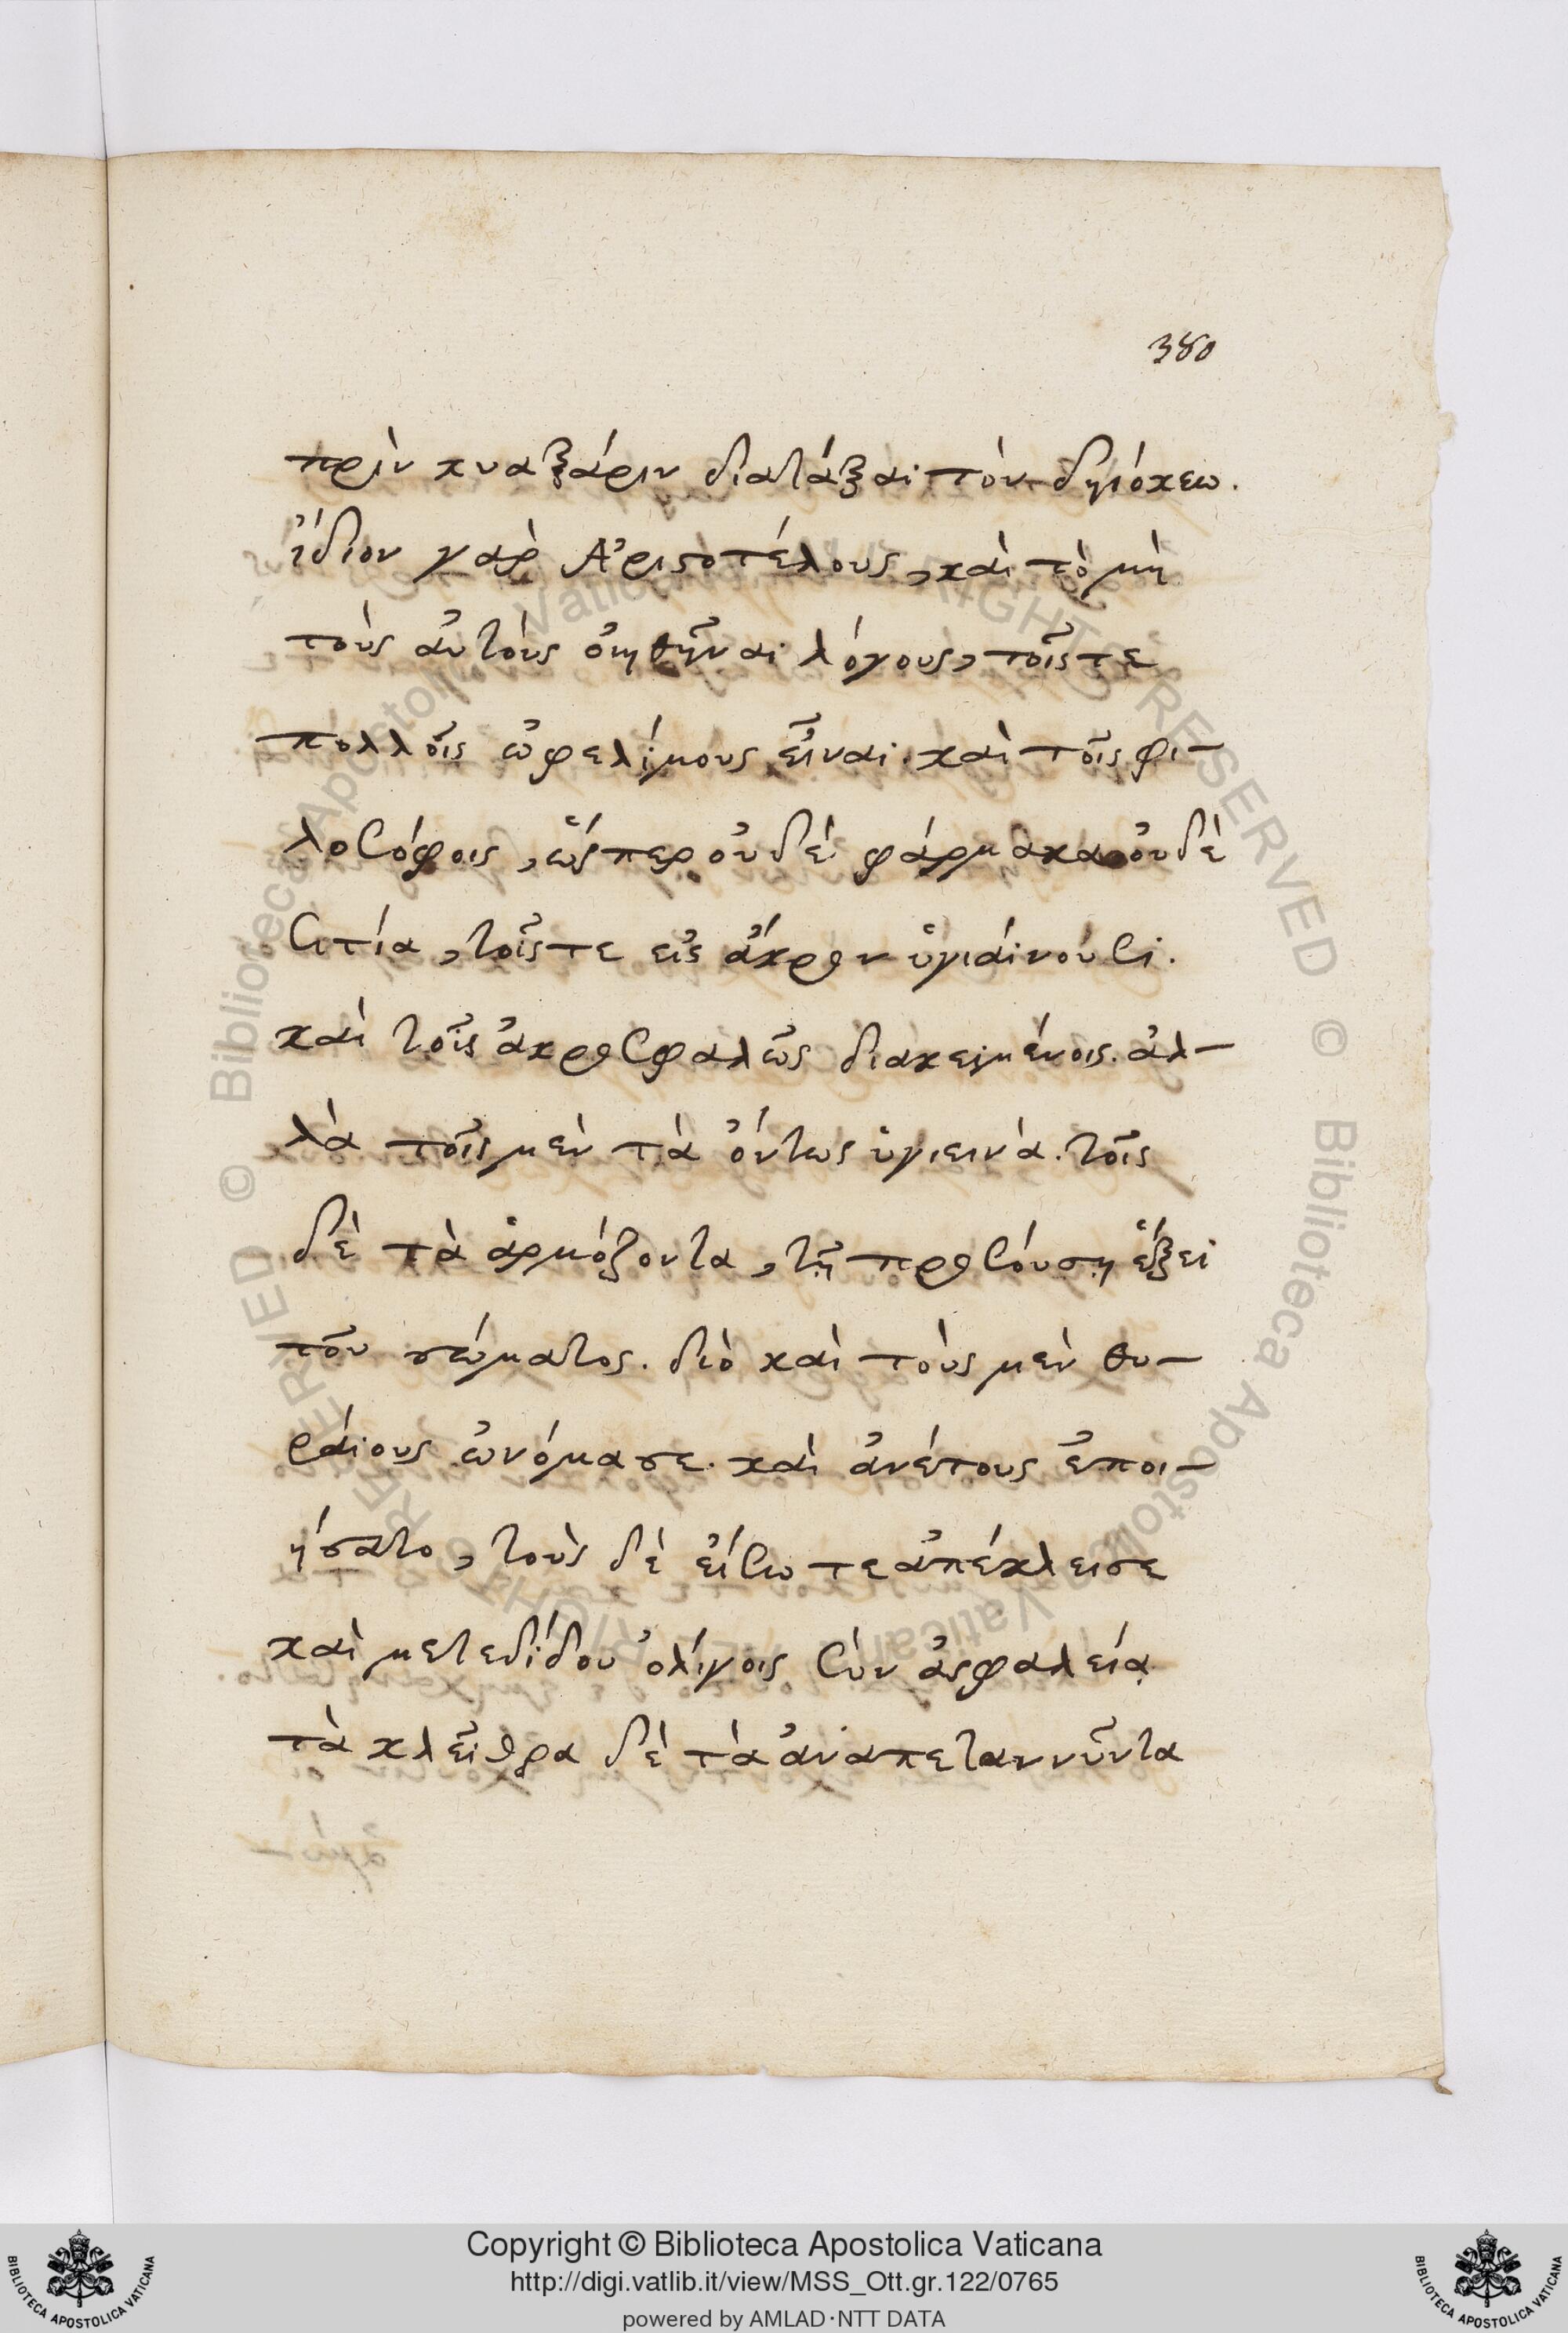 380
πρὶν κυαξάριν διατάξαι τὸν δηιόκεω.
ἴδιον γὰρ Ἀριστοτέλους, καὶ τὸ μὴ
τοὺς αὐτοὺς οἰηθῆναι λόγους, τοῖς τε
πολλοῖς ὠφελίμους εἶναι. καὶ τοῖς φι-
λοσόφοις, ὥσπερ οὐδὲ φάρμακα οὐδὲ
σιτία, τοῖς τε εἰς ἄκρον ὑγιαίνουσι.
καὶ τοῖς ἀκροσφαλῶς διακειμένοις. ἀλ-
λὰ τοῖς μὲν τὰ ὄντως ὑγιεινά. τοῖς
δὲ τὰ ἁρμόζοντα, τῇ προσούσῃ ἕξει
τοῦ σώματος. διὸ καὶ τοὺς μὲν θυ-
ραίους ὠνόμασε. καὶ ἀνέτους ἐποι-
ήσατο, τοὺς δὲ εἴσω τε ἀπέκλεισε
καὶ μετεδίδου ὀλίγοις σὺν ἀσφαλείᾳ
τὰ κλεῖθρα δὲ τὰ ἀναπεταννῦντα
Copyright © Biblioteca Apostolica Vaticana
http://digi.vatlib.it/view/MSS_Ott.gr.122/0765
powered by AMLAD·NTT DATA
BIBLIOTECA APOSTOLICA VATICANA
BIBLIOTECA APOSTOLICA VATICANA